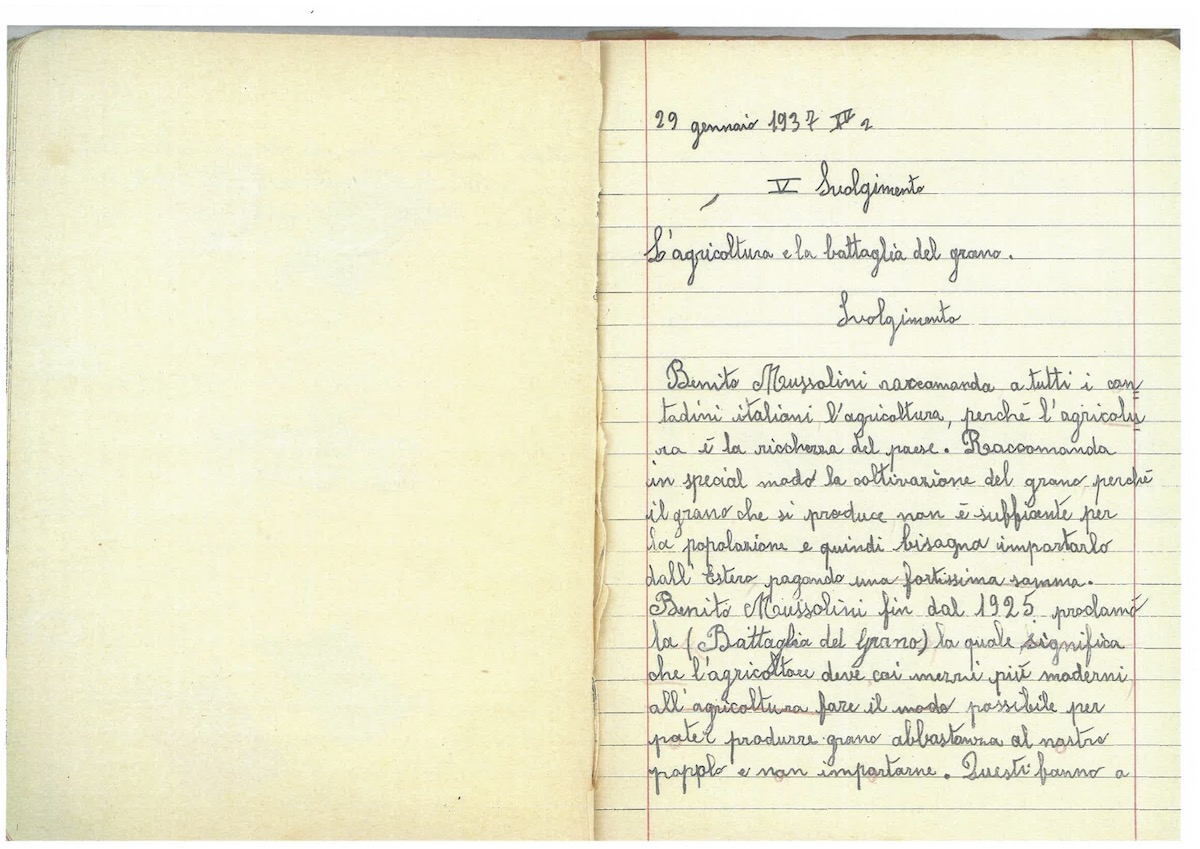 29 gennaio 1937 XV
V Svolgimento
L'agricoltura e la battaglia del grano.
Svolgimento
Benito Mussolini raccomanda a tutti i con=
tadini italiani l'agricoltura, perché l'agricoltu=
ra è la ricchezza del paese. Raccomanda
in special modo la coltivazione del grano perché
il grano che si produce non è sufficente per
la popolazione e quindi bisogna importarlo
dall'Estero pagando una fortissima somma.
Benito Mussolini fin dal 1925 proclamò
la (Battaglia del Grano) la quale significa
che l'agricoltore deve coi mezzi più moderni
all'agricoltura fare il modo possibile per
poter produrre grano abbastanza al nostro
popplo e non importarne. Questi fanno a